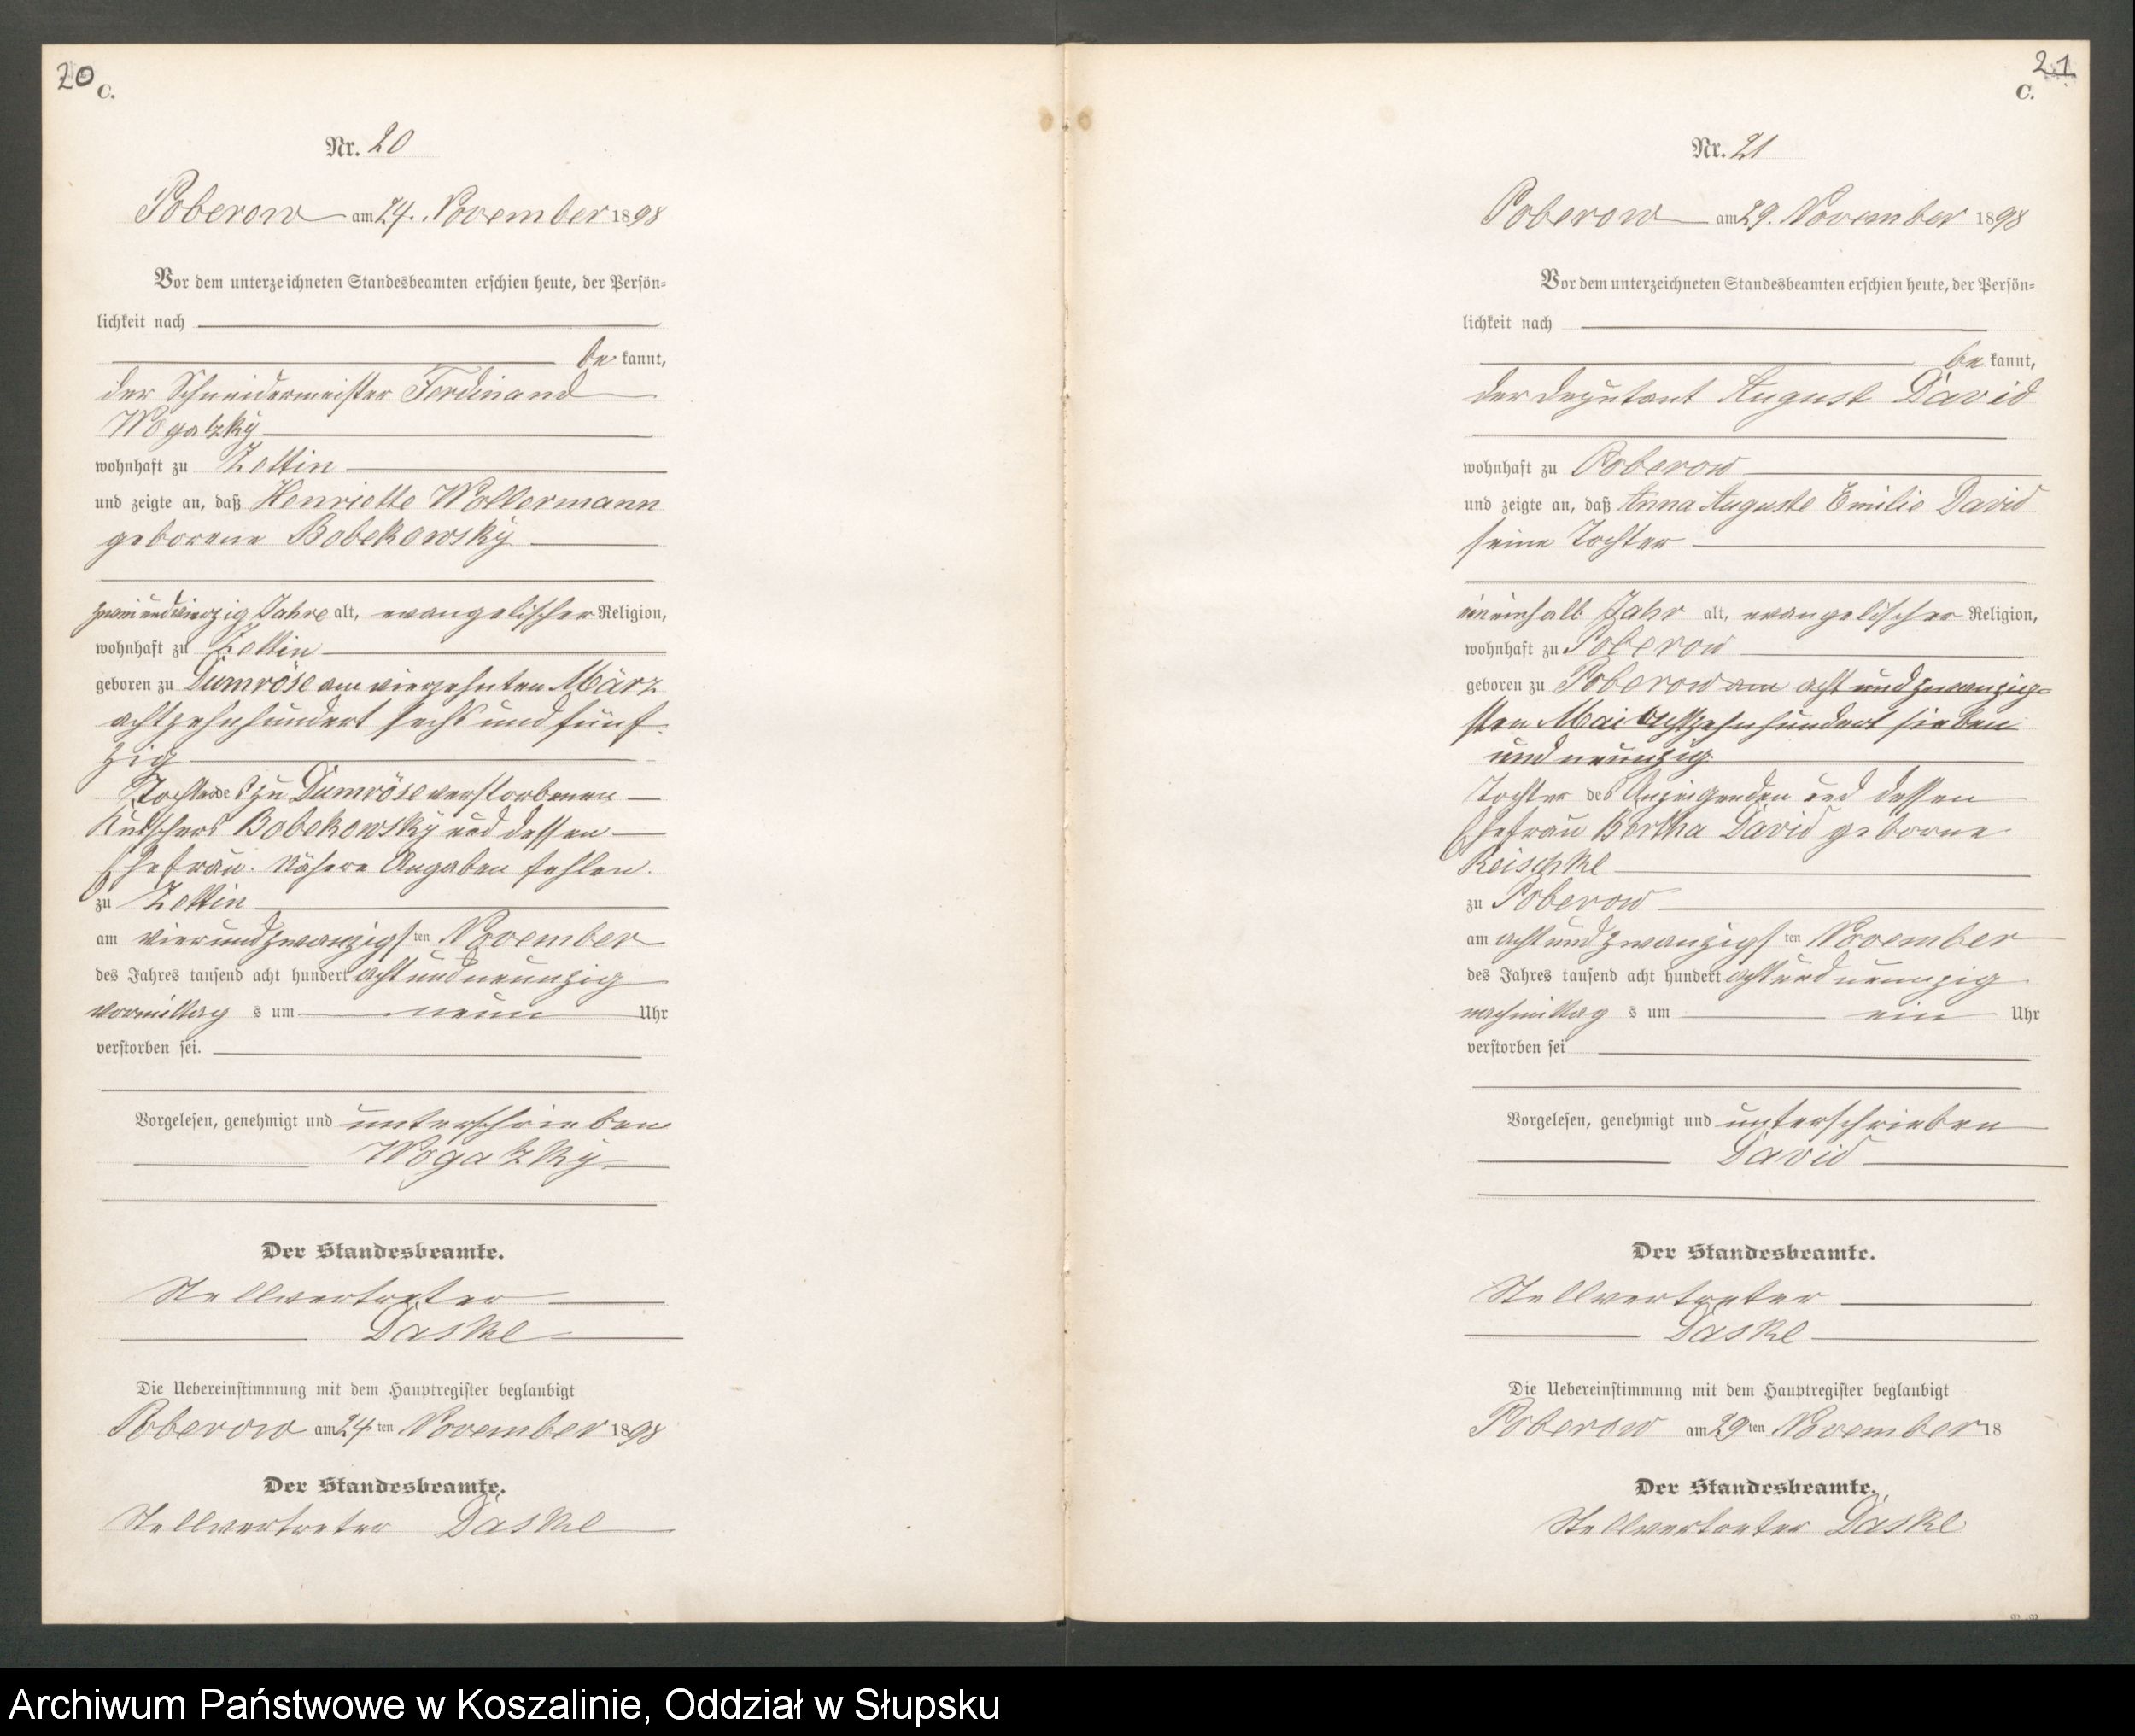 20
C.
Nr. 20
Poberow am 24. November 1898
Vor dem unterzeichneten Standesbeamten erschien heute, der Persön-
lichkeit nach
be kannt,
der Schneidermeister Ferdinand
Wogatzky
wohnhaft zu Zettin
und zeigte an, daß Henriette Wollermann
geborene Bobekowsky
zweiundvierzig Jahre alt, evangelischer Religion,
wohnhaft zu Zettin
geboren zu Dumröse am vierzehnten März
achtzehnhundert sechs und fünf
zig
Tochter des zu Dumröse verstorbenen
Kutschers Bobekowsky und dessen
Ehefrau. Nähere Angaben fehlen.
zu Zettin
am vierundzwanzigsten November
des Jahres tausend acht hundert achtundneunzig
vormittag s um neun Uhr
verstorben sei.
Vorgelesen, genehmigt und unterschrieben
Wogatzky
Der Standesbeamte.
Stellvertreter
Daske
Die Uebereinstimmung mit dem Hauptregister beglaubigt
Poberow am 24. ten November 1898
Der Standesbeamte.
Stellvertreter Daske
21
C.
Nr. 21
Poberow am 29. November 1898
Vor dem unterzeichneten Standesbeamten erschien heute, der Persön-
lichkeit nach
be kannt,
der Deputant August David
wohnhaft zu Poberow
und zeigte an, daß Anna Auguste Emilie David
seine Tochter
eineinhalb Jahr alt, evangelischer Religion,
wohnhaft zu Poberow
geboren zu Poberow am acht und zwanzig-
sten Mai achtzehnhundert sieben
und neunzig
Tochter des Anzeigenden und dessen
Ehefrau Bertha David geborne
Reischke
zu Poberow
am acht und zwanzigsten November
des Jahres tausend acht hundert acht und neunzig
nachmittag s um ein Uhr
verstorben sei
Vorgelesen, genehmigt und unterschrieben
David
Der Standesbeamte.
Stellvertreter
Daske
Die Uebereinstimmung mit dem Hauptregister beglaubigt
Poberow am 29 ten November 18
Der Standesbeamte.
Stellvertreter Daske
Archiwum Państwowe w Koszalinie, Oddział w Słupsku